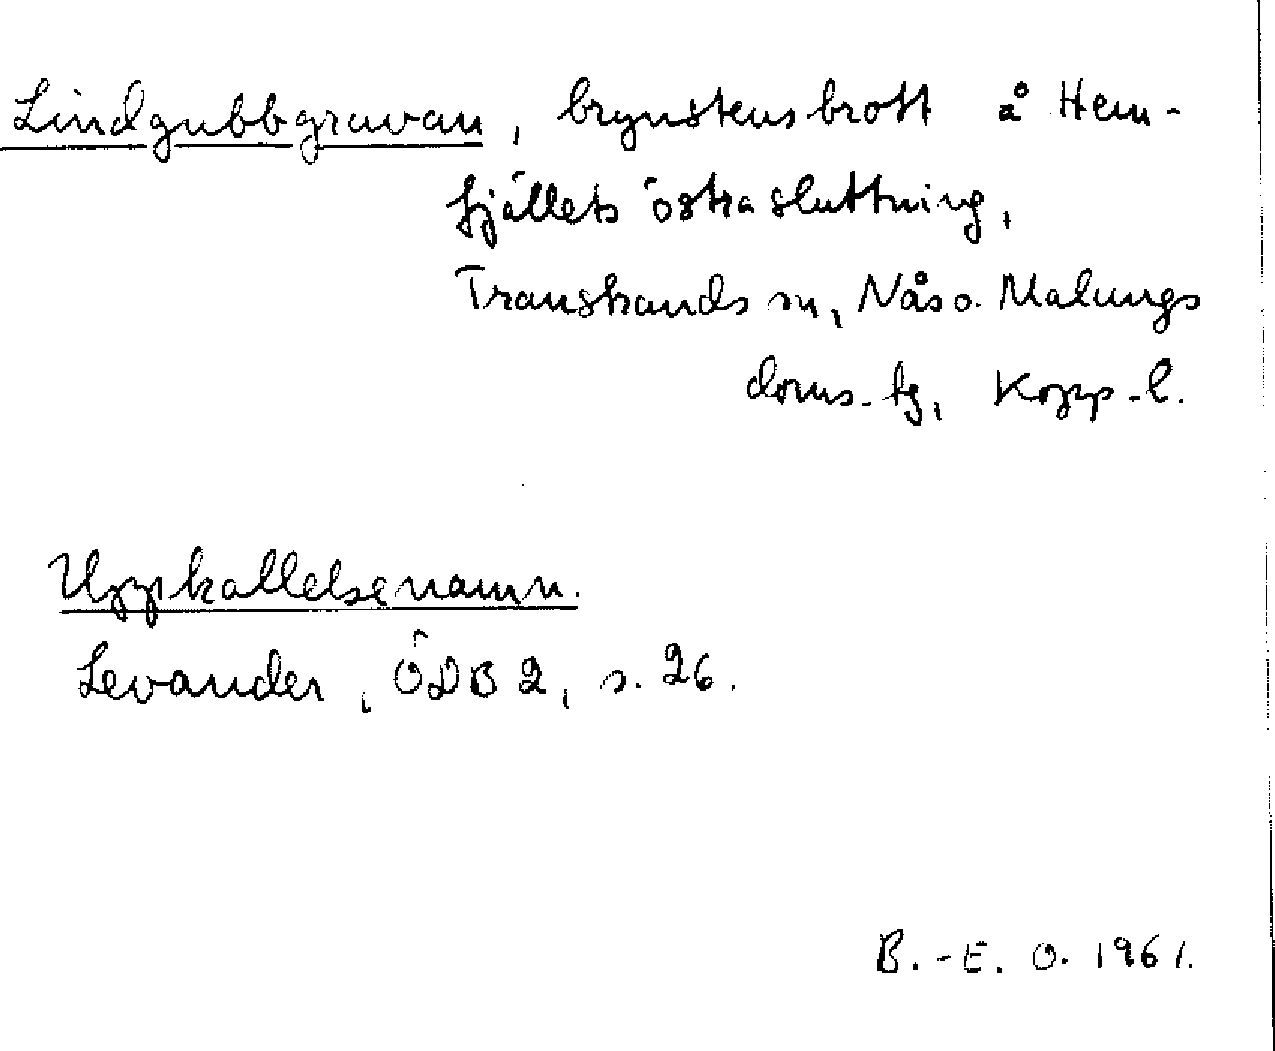 Lindgubbgravan, brynstensbrott å Hem-
fjällets östra sluttning,
Transtrands sn, Nås o. Malungs
doms. tg, Kopp. l.
Uppkallelsenamn.
Levander, ÖDB 2, s. 26.
B.-E. O. 1961.